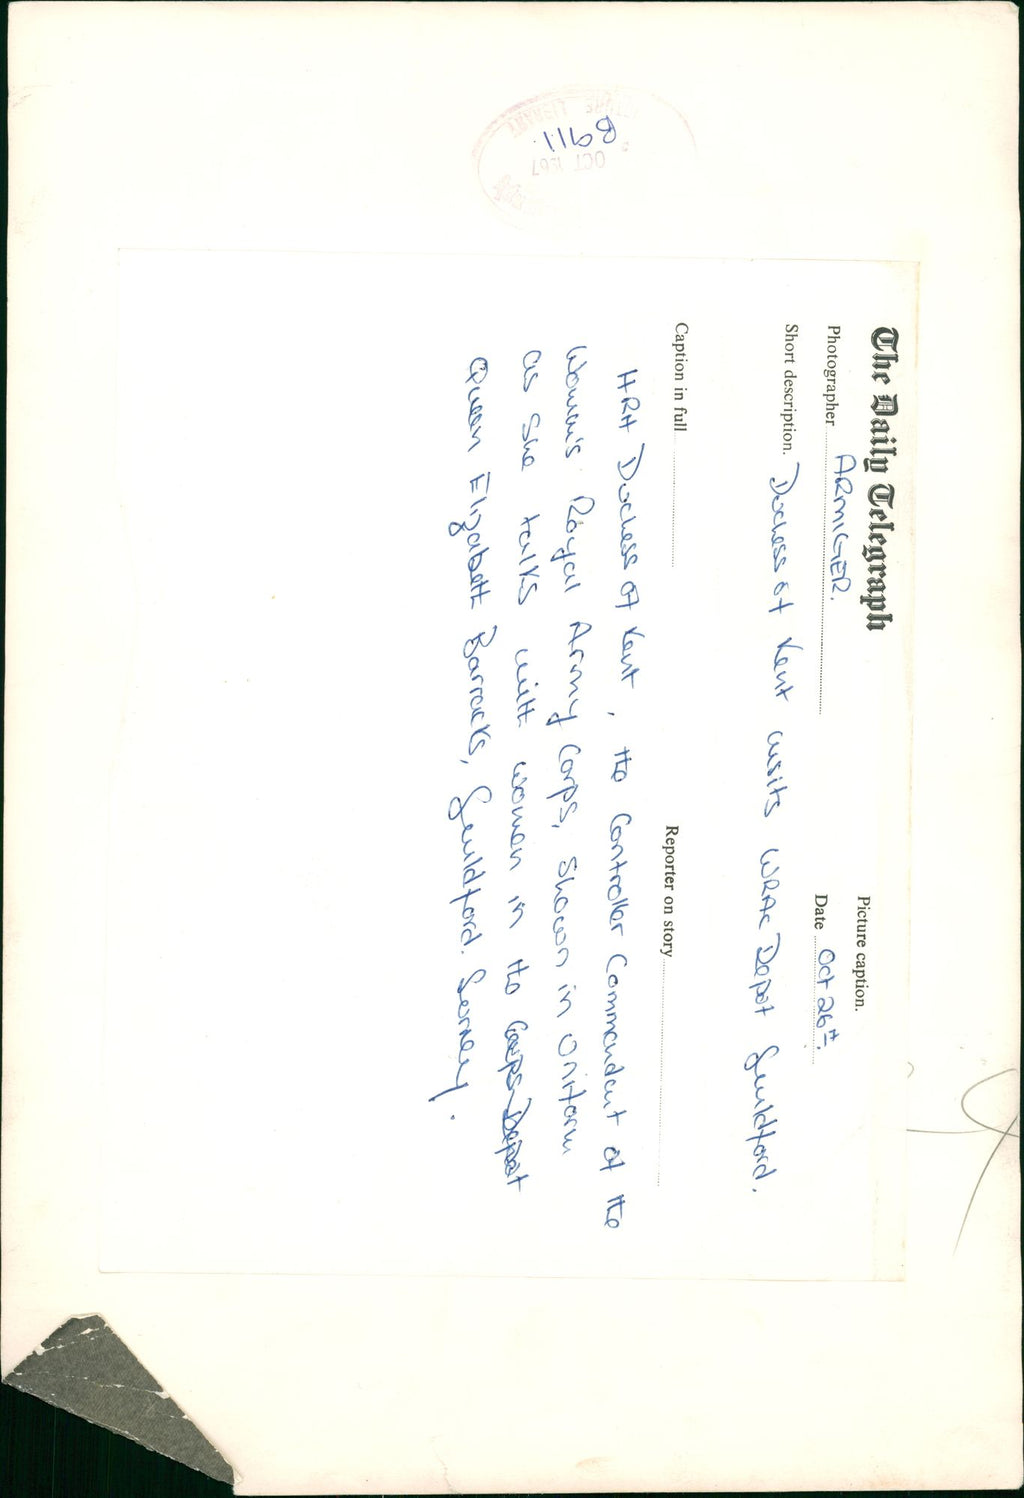 The Daily Telegraph
Picture caption.
Photographer ARMIGER.
Date Oct 26th.
Short description. Duchess of Kent visits WRAC Depot Guildford.
Caption in full
Reporter on story
HRH Duchess of Kent, the Controller Commandant of the
Women's Royal Army Corps, shown in uniform
as she talks with women in the Corps Depot
Queen Elizabeth Barracks, Guildford. Surrey.
LIBRARY
8911.
OCT 1967